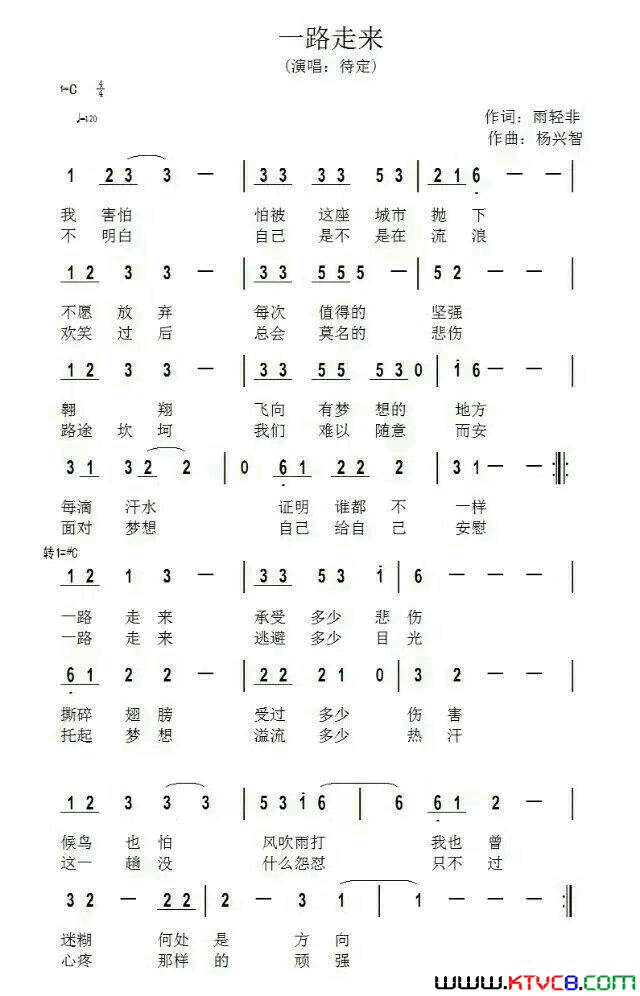 一路走来
(演唱：待定)
1=C 4/4
♩=120
作词：雨轻非
作曲：杨兴智
1 2 3 3 — | 3 3 3 3 5 3 | 2 1 6 — — |
我 害怕 怕被 这座 城市 抛 下
不 明白 自己 是不 是在 流 浪
1 2 3 3 — | 3 3 5 5 5 — | 5 2 — — |
不愿 放 弃 每次 值得的 坚强
欢笑 过 后 总会 莫名的 悲伤
1 2 3 3 — | 3 3 5 5 5 3 0 | 1 6 — — |
翱 翔 飞向 有梦 想的 地方
路途 坎 坷 我们 难以 随意 而安
3 1 3 2 2 | 0 6 1 2 2 2 | 3 1 — — :||:
每滴 汗水 证明 谁都 不 一样
面对 梦想 自己 给自 己 安慰
转1=#C
1 2 1 3 | 3 3 5 3 1 | 6 — — — |
一路 走 来 承受 多少 悲 伤
一路 走 来 逃避 多少 目 光
6 1 2 2 — | 2 2 2 1 0 | 3 2 — — |
撕碎 翅 膀 受过 多少 伤 害
托起 梦 想 溢流 多少 热 汗
1 2 3 3 3 | 5 3 1 6 — | 6 6 1 2 — |
候鸟 也 怕 风吹雨打 我也 曾
这一 趟 没 什么怨怼 只不 过
3 2 — 2 2 | 2 — 3 1 | 1 — — — ||
迷糊 何处 是 方 向
心疼 那样 的 顽 强
www.KTVC8.com